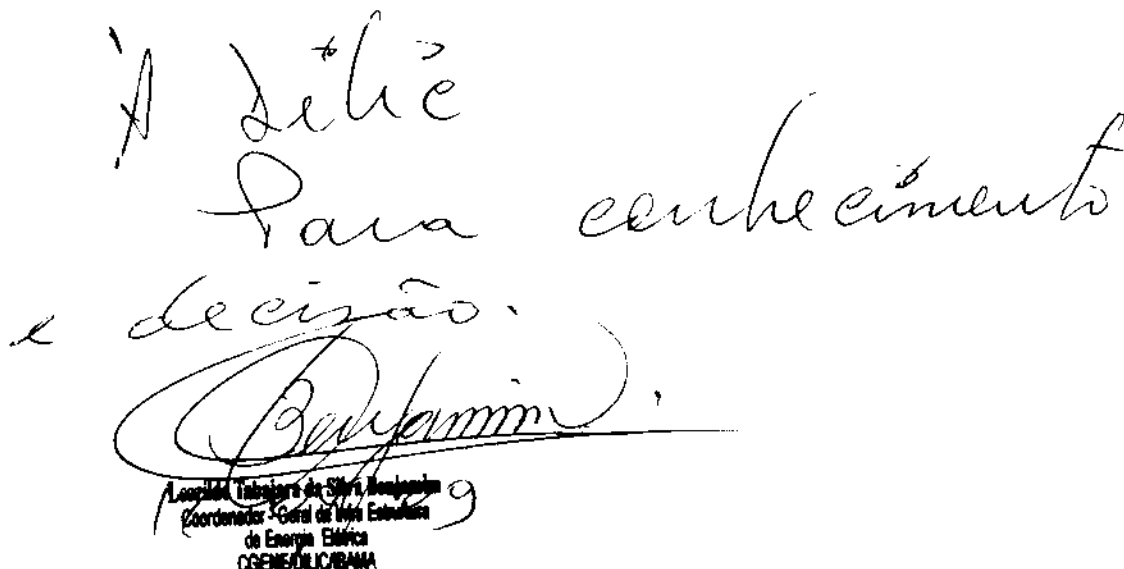 À Dilic
Para conhecimento
e decisão.
Benjamin
Leozildo Tabajara da Silva Benjamin
Coordenador - Geral de Infra Estrutura
de Energia Elétrica
CGENE/DILIC/IBAMA